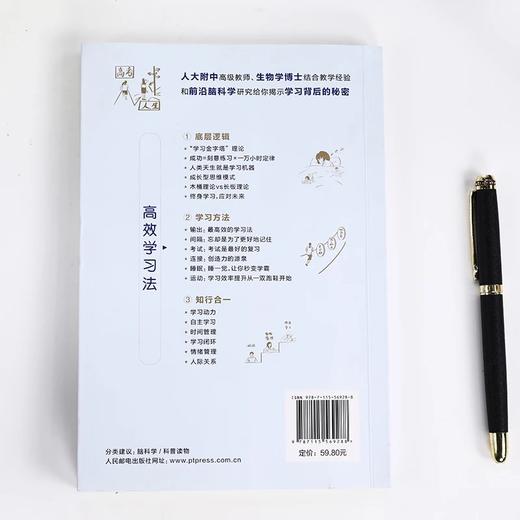 高考
人生
人大附中高级教师、生物学博士结合教学经验
和前沿脑科学研究给你揭示学习背后的秘密
① 底层逻辑
• “学习金字塔”理论
• 成功=刻意练习×一万小时定律
• 人类天生就是学习机器
• 成长型思维模式
• 木桶理论vs长板理论
• 终身学习，应对未来
高效学习法
② 学习方法
• 输出：最高效的学习法
• 间隔：忘却是为了更好地记住
• 考试：考试是最好的复习
• 连接：创造力的源泉
• 睡眠：睡一觉，让你秒变学霸
• 运动：学习效率提升从一双跑鞋开始
③ 知行合一
• 学习动力
• 自主学习
• 时间管理
• 学习闭环
• 情绪管理
• 人际关系
ISBN 978-7-115-56928-8
9 787115 569288 >
定价：59.80元
分类建议：脑科学／科普读物
人民邮电出版社网址：www.ptpress.com.cn